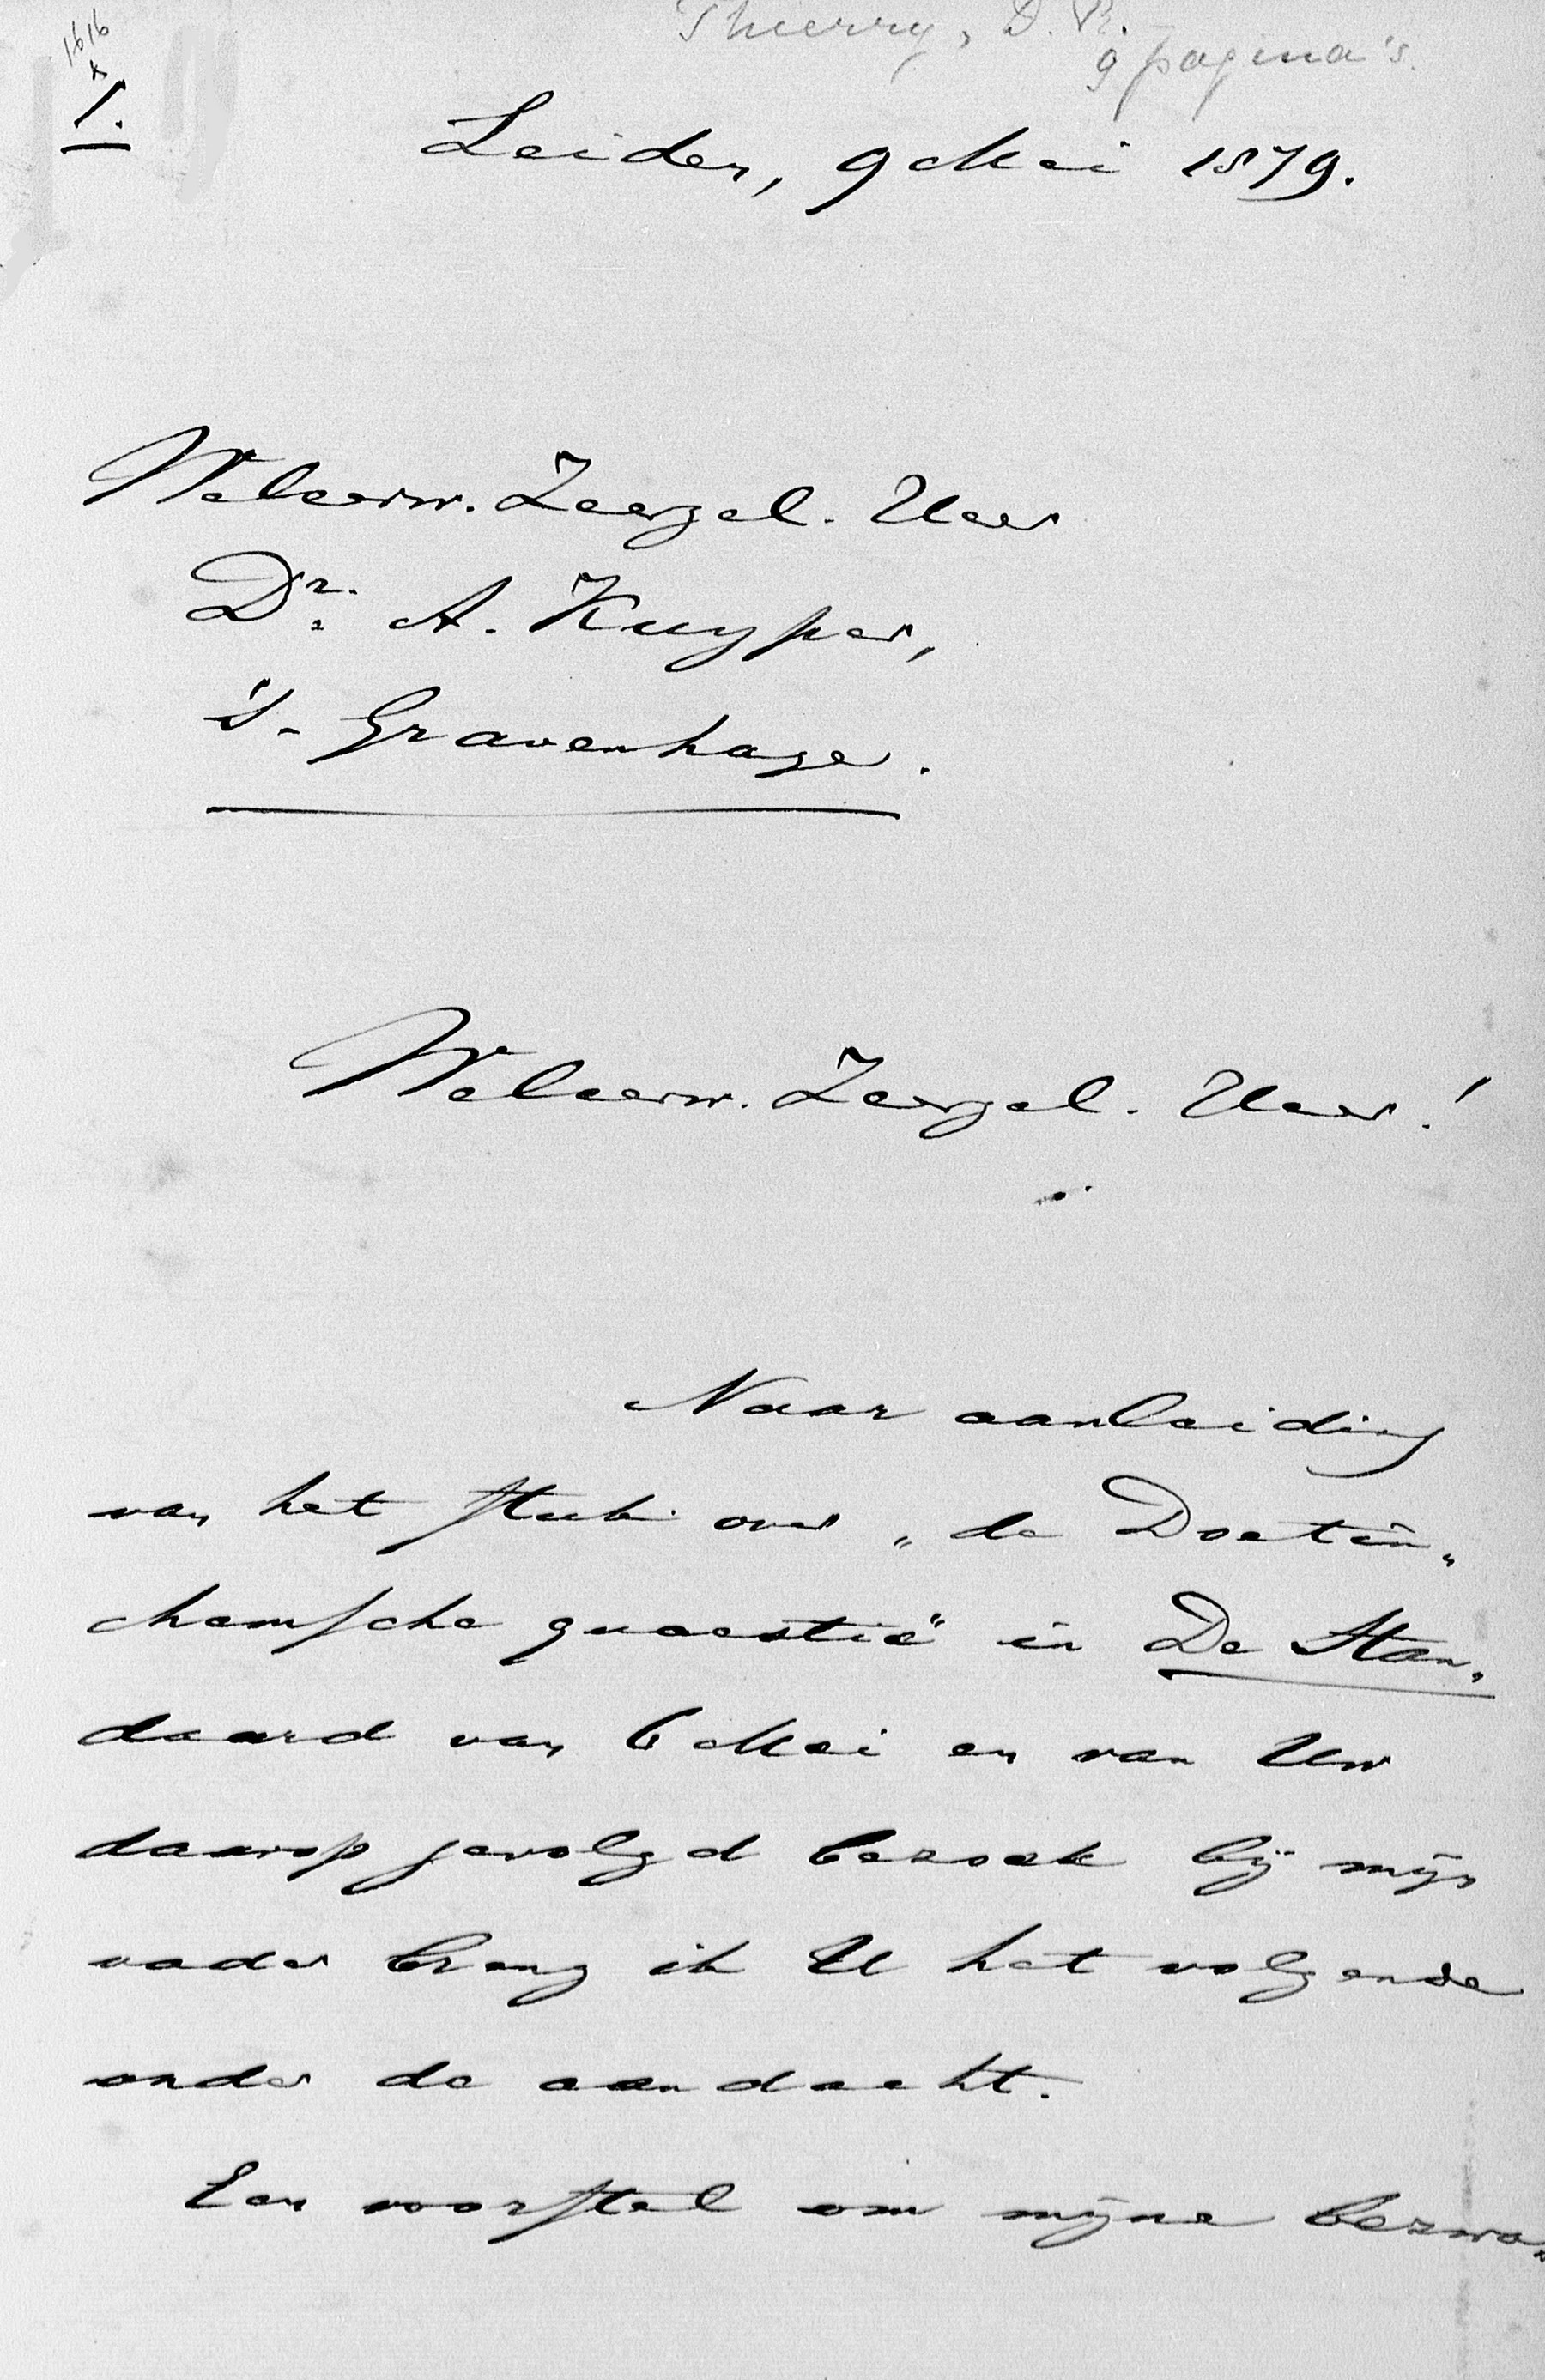 Thierry, D. R.
9 pagina's.
1616
x
1.
Leiden, 9 Mei 1879.
Weleerw. Zeergel. Heer
Dr. A. Kuyper,
's-Gravenhage.
Weleerw. Zeergel. Heer!
Naar aanleiding
van het stuk over „de Doetin„
chemsche quaestie" in De Stan„
daard van 6 Mei en van Uw
daarop gevolgd bezoek bij mijn
vader breng ik U het volgende
onder de aandacht.
Een voorstel om mijne bezwa„